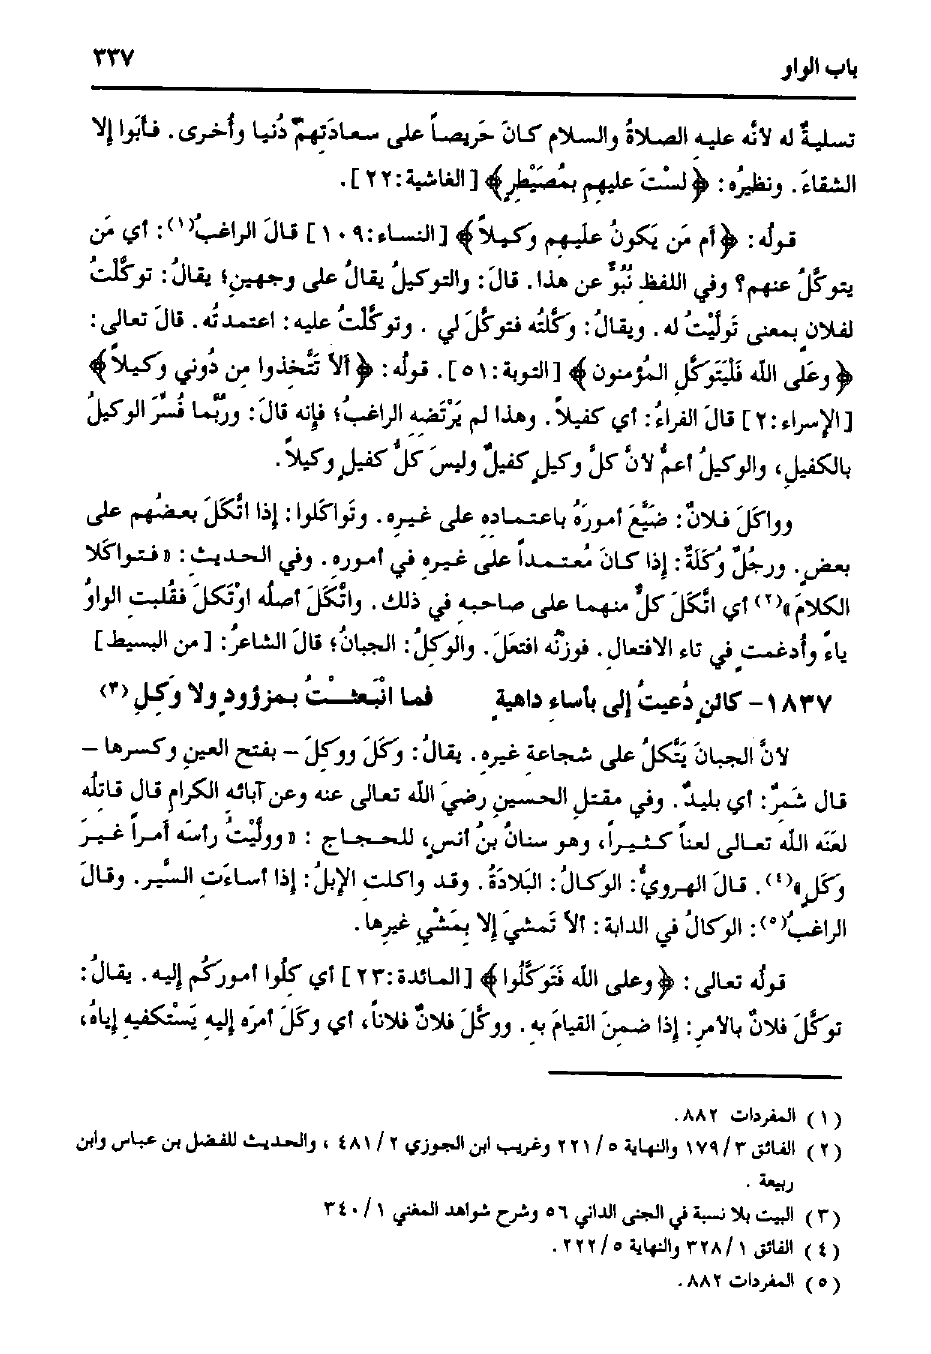 باب الواو
٣٣٧
تسليةٌ له لأنَّه عليه الصلاةُ والسلام كانَ حَريصاً على سعادَتِهمْ دُنيا وأُخرى. فأبَوا إلا
الشقاءَ. ونظيرُه: ﴿ لسْتَ عليهِم بمُصَيْطِرٍ﴾ [ الغاشية:٢٢].
قولُه: ﴿أم مَن يَكونُ علَيهِم وكيلاً﴾ [النساء:١٠٩] قالَ الراغبُ(١): أي مَن
يتوكَّلُ عنهم؟ وفي اللفظِ نُبُوٌّ عن هذا. قالَ: والتوكيلُ يقالُ على وجهينِ؛ يقالُ: توكَّلْتُ
لفلانٍ بمعنى تَولَّيْتُ له. ويقالُ: وكَّلتُه فتوكَّلَ لي . وتوكَّلْتُ عليه: اعتمدتُه. قالَ تعالى:
﴿ وعلَى الله فَلْيَتَوكَّلِ المؤمنون ﴾ [التوبة:٥١]. قولُه: ﴿ ألاَّ تَتَّخِذوا مِن دُوني وكيلاً﴾
[الإسراء:٢] قالَ الفراءُ: أي كفيلاً. وهذا لم يَرْتَضِه الراغبُ؛ فإنه قالَ: وربَّما فُسِّرَ الوكيلُ
بالكفيلِ، والوكيلُ أعمُّ لأنَّ كلَّ وكيلٍ كفيلٌ وليسَ كلُّ كفيلٍ وكيلاً.
وواكَلَ فلانٌ: ضَيَّعَ أمورَهُ باعتمادِه على غيرِه. وتَواكَلوا: إذا اتَّكَلَ بعضُهم على
بعضٍ. ورجُلٌ وُكَلَةٌ: إذا كانَ مُعتمداً على غيرِه في أمورِه. وفي الحديثِ: «فتواكَلا
الكلامَ»(٢) أي اتَّكَلَ كلٌّ منهما على صاحبِه في ذلك. واتَّكَلَ أصلُه اوْتَكلَ فقُلبتِ الواوُ
ياءً وأُدغمتْ في تاء الافتعالِ. فوزنُه افتعَلَ. والوكَلُ: الجبانُ؛ قالَ الشاعرُ: [ من البسيط]
١٨٣٧- كائنٍ دُعيتُ إلى بأساءِ داهيةٍ فما انْبَعثْتُ بمزؤودٍ ولا وَكَلِ (٣)
لأنَّ الجبانَ يَتَّكلُ على شجاعةِ غيرِه. يقالُ: وكَلَ ووكِلَ – بفتح العينِ وكسرِها –
قال شَمرٌ: أي بليدٌ. وفي مقتلِ الحسينِ رضيَ الله تعالى عنه وعن آبائه الكرامِ قال قاتلُه
لعَنَه اللهُ تعالى لعناً كثيراً، وهو سنانُ بنُ أنسٍ، للحجاجِ : «وولَّيْتُ رأسَه أمراً غيرَ
وَكَلٍ»(٤). قالَ الهرويُّ: الوكالُ: البَلادَةُ. وقد واكلتِ الإبلُ: إذا أساءَتِ السَّير. وقالَ
الراغبُ(٥): الوكالُ في الدابةِ: ألاَّ تَمشيَ إلا بمَشْيِ غيرِها.
قولُه تعالى: ﴿وعلى الله فَتَوكَّلوا﴾ [المائدة:٢٣] أي كِلُوا أمورَكُم إليه. يقالُ:
توكَّلَ فلانٌ بالأمرِ: إذا ضمنَ القيامَ به. ووكَّلَ فلانٌ فلاناً، أي وكَلَ أمرَه إليه يَسْتكفيهِ إياهُ،
(١) المفردات ٨٨٢.
(٢) الفائق ٣/ ١٧٩ والنهاية ٥/ ٢٢١ وغريب ابن الجوزي ٢/ ٤٨١ ، والحديث للفضل بن عباس وابن
ربيعة .
(٣) البيت بلا نسبة في الجنى الداني ٥٦ وشرح شواهد المغني ١/ ٣٤٠
(٤) الفائق ١/ ٣٢٨ والنهاية ٥/ ٢٢٢.
(٥) المفردات ٨٨٢.